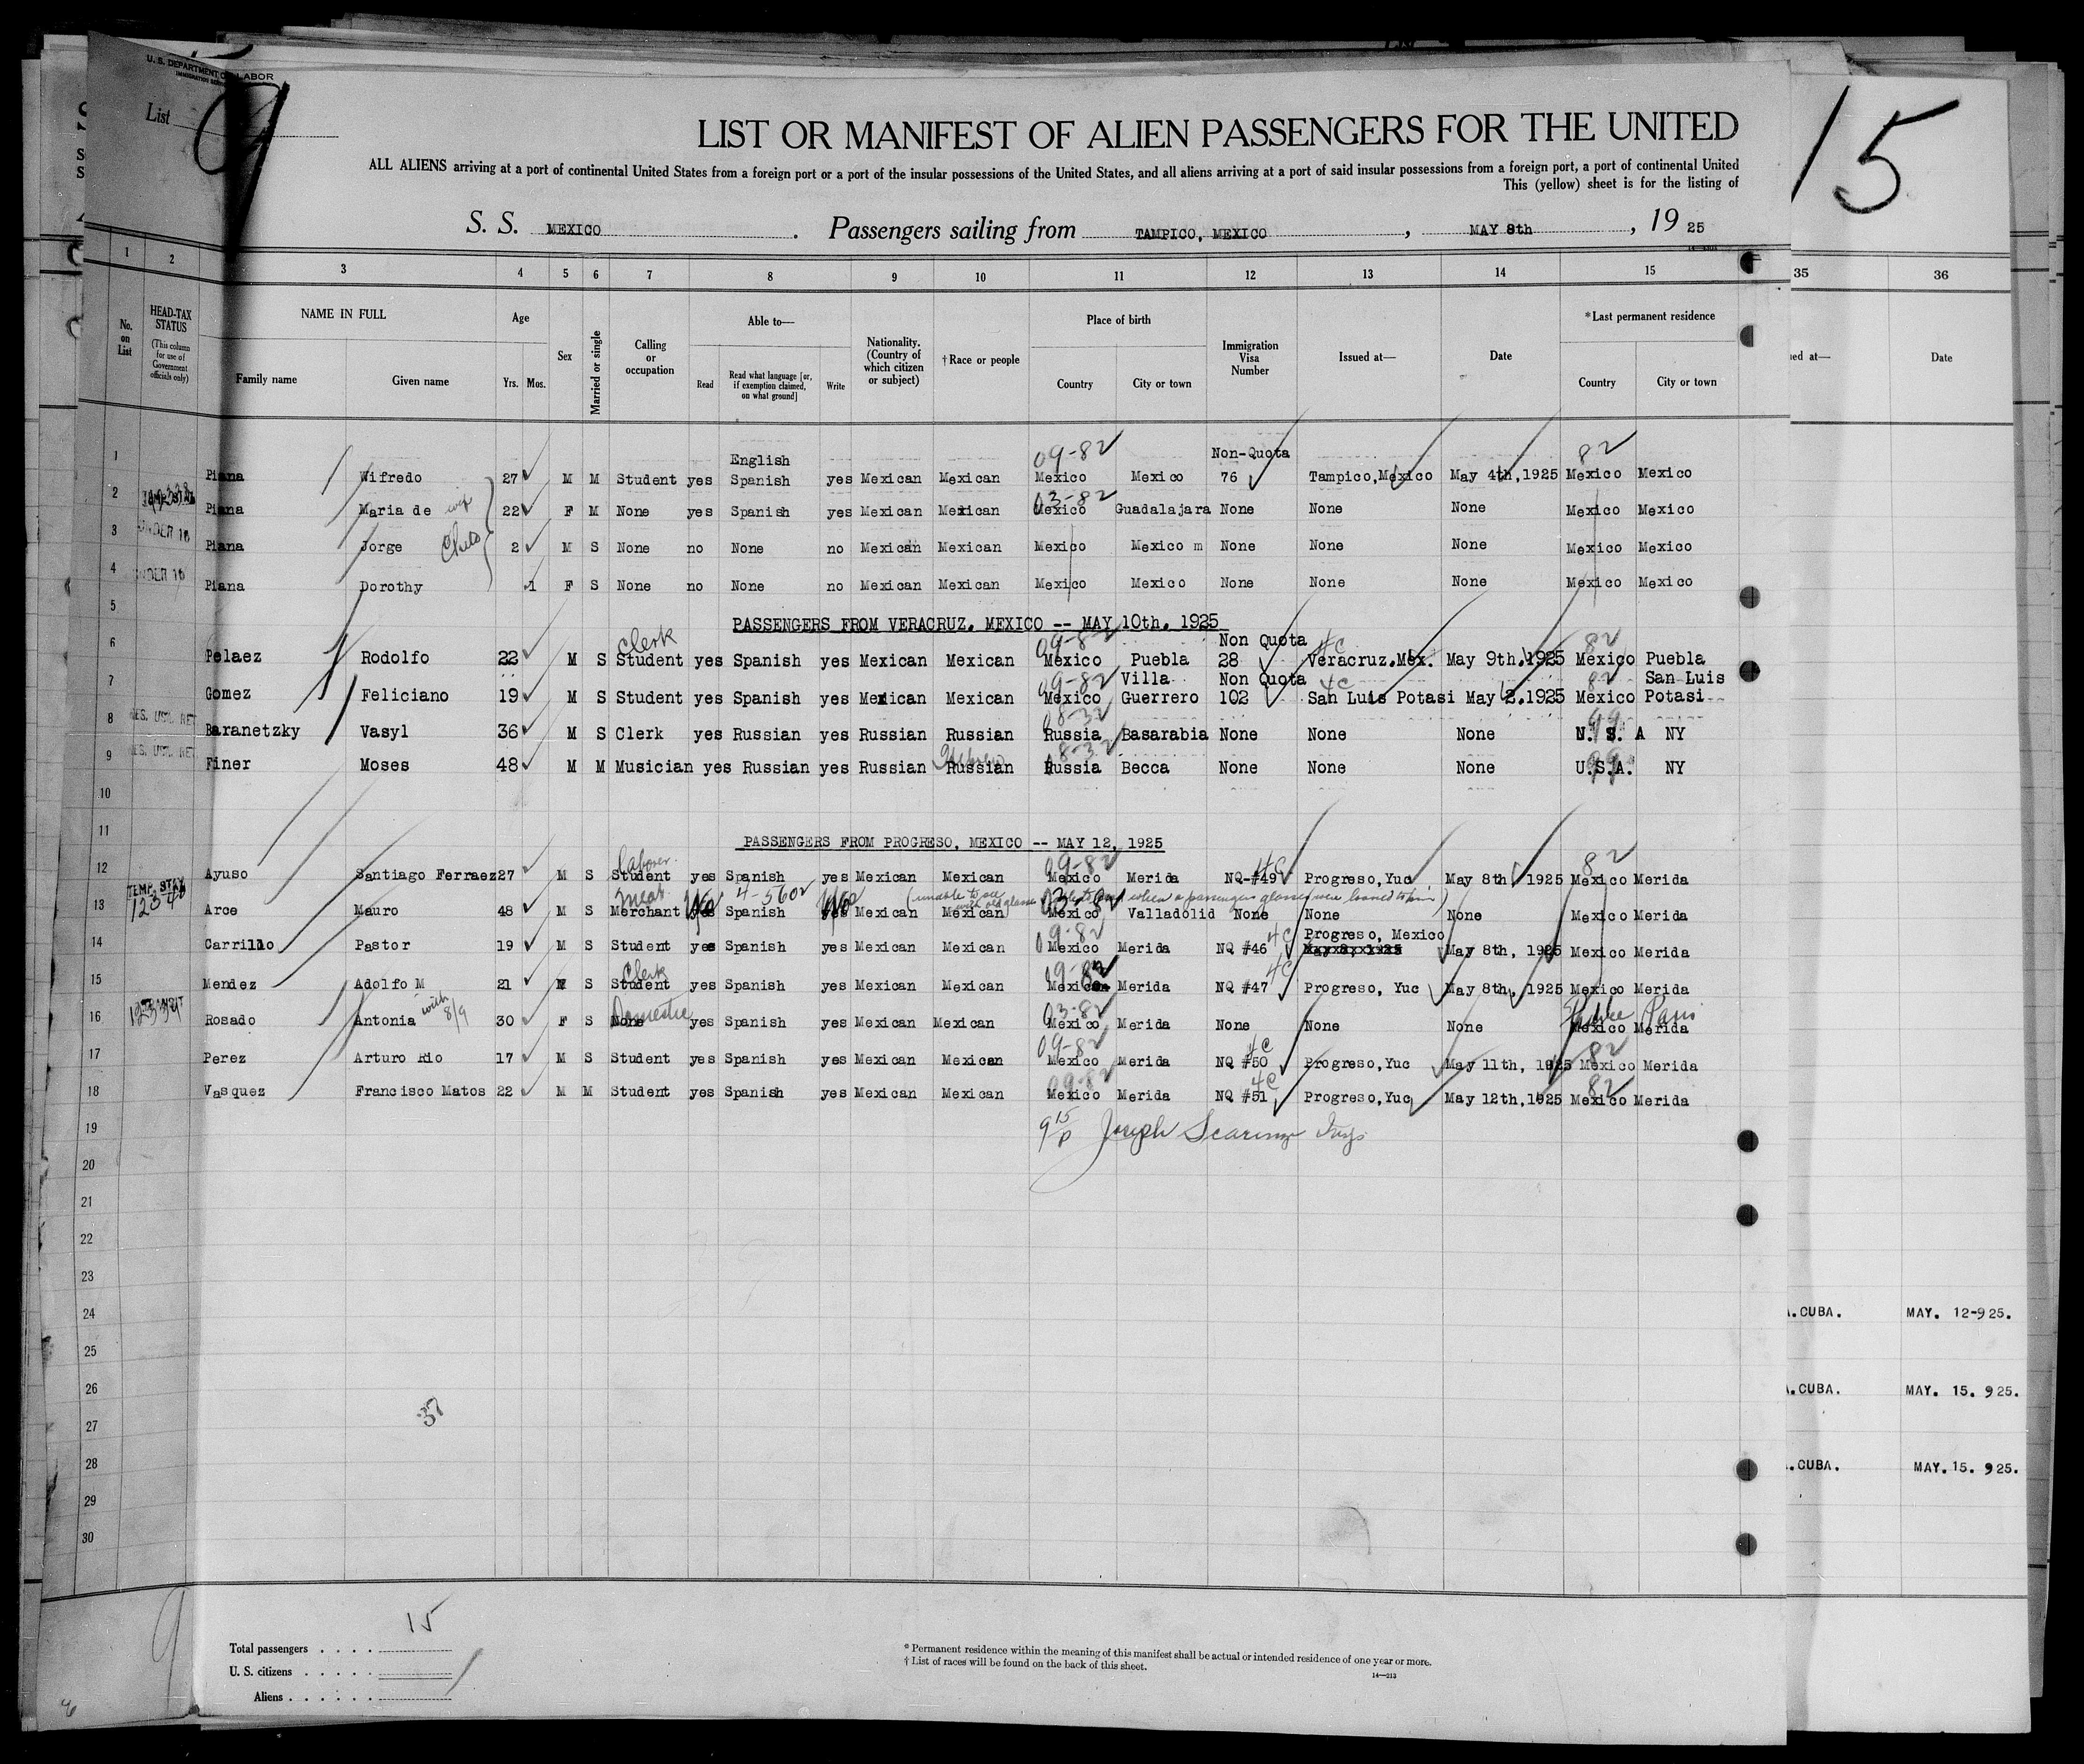 U. S. DEPARTMENT OF LABOR
List 9
LIST OR MANIFEST OF ALIEN PASSENGERS FOR THE UNITED
ALL ALIENS arriving at a port of continental United States from a foreign port or a port of the insular possessions of the United States, and all aliens arriving at a port of said insular possessions from a foreign port, a port of continental United
This (yellow) sheet is for the listing of
15
S. S. MEXICO . Passengers sailing from TAMPICO, MEXICO , MAY 8th , 19 25
1 2 3 4 5 6 7 8 9 10 11 12 13 14 15 35 36
No. on List
HEAD-TAX STATUS (This column for use of Government officials only)
NAME IN FULL
Family name Given name
Age
Yrs. Mos.
Sex
Married or single
Calling or occupation
Able to—
Read Read what language [or, if exemption claimed, on what ground] Write
Nationality. (Country of which citizen or subject)
†Race or people
Place of birth
Country City or town
Immigration Visa Number
Issued at—
Date
*Last permanent residence
Country City or town
ued at— Date
English 09-82 Non-Quota 82
1 Piana Wifredo 27 M M Student yes Spanish yes Mexican Mexican Mexico Mexico 76 Tampico,Mexico May 4th,1925 Mexico Mexico
03-82
2 Piana Maria de wife 22 F M None yes Spanish yes Mexican Mexican Mexico Guadalajara None None None Mexico Mexico
3 UNDER 16 Piana Jorge 2 M S None no None no Mexican Mexican Mexico Mexico m None None None Mexico Mexico
4 UNDER 16 Piana Dorothy 1 F S None no None no Mexican Mexican Mexico Mexico None None None Mexico Mexico
5 PASSENGERS FROM VERACRUZ, MEXICO -- MAY 10th, 1925
Clerk 09-82 Non Quota 4C 82
6 Pelaez Rodolfo 22 M S Student yes Spanish yes Mexican Mexican Mexico Puebla 28 Veracruz.Mex. May 9th.1925 Mexico Puebla
09-82 Villa Non Quota 4C 82 San Luis
7 Gomez Feliciano 19 M S Student yes Spanish yes Mexican Mexican Mexico Guerrero 102 San Luis Potasi May 2.1925 Mexico Potasi
08-32 99
8 Baranetzky Vasyl 36 M S Clerk yes Russian yes Russian Russian Russia Basarabia None None None N. S. A NY
Hebrew 08-32 99
9 Finer Moses 48 M M Musician yes Russian yes Russian Russian Russia Becca None None None U.S.A. NY
10
11 PASSENGERS FROM PROGRESO, MEXICO -- MAY 12, 1925
laborer 09-82 4C 82
12 Ayuso Santiago Ferraez 27 M S Student yes Spanish yes Mexican Mexican Mexico Merida NQ-#49 Progreso,Yuc May 8th, 1925 Mexico Merida
TEMP. STAY meat No 4-5602 No 03-82
13 Arce Mauro 48 M S Merchant yes Spanish yes Mexican Mexican Mexico Valladolid None None None Mexico Merida
09-82 4C Progreso, Mexico
14 Carrillo Pastor 19 M S Student yes Spanish yes Mexican Mexican Mexico Merida NQ #46 May 8th, 1925 Mexico Merida
Clerk 09-82 4C
15 Mendez Adolfo M 21 M S Student yes Spanish yes Mexican Mexican Mexican Merida NQ #47 Progreso, Yuc May 8th, 1925 Mexico Merida
TRANSIT with 8/9 Domestic 03-82 Paris
16 Rosado Antonia 30 F S None yes Spanish yes Mexican Mexican Mexico Merida None None None Mexico Merida
09-82 4C 82
17 Perez Arturo Rio 17 M S Student yes Spanish yes Mexican Mexican Mexico Merida NQ #50 Progreso,Yuc May 11th, 1925 Mexico Merida
09-82 4C 82
18 Vasquez Francisco Matos 22 M M Student yes Spanish yes Mexican Mexican Mexico Merida NQ #51 Progreso,Yuc May 12th,1925 Mexico Merida
19 9 15/p Joseph
20
21
22
23
24 CUBA. MAY. 12-925.
25
26 CUBA. MAY. 15. 925.
27 37
28 CUBA. MAY. 15. 925.
29
30
15
Total passengers
U. S. citizens
Aliens
* Permanent residence within the meaning of this manifest shall be actual or intended residence of one year or more.
† List of races will be found on the back of this sheet.
14—213